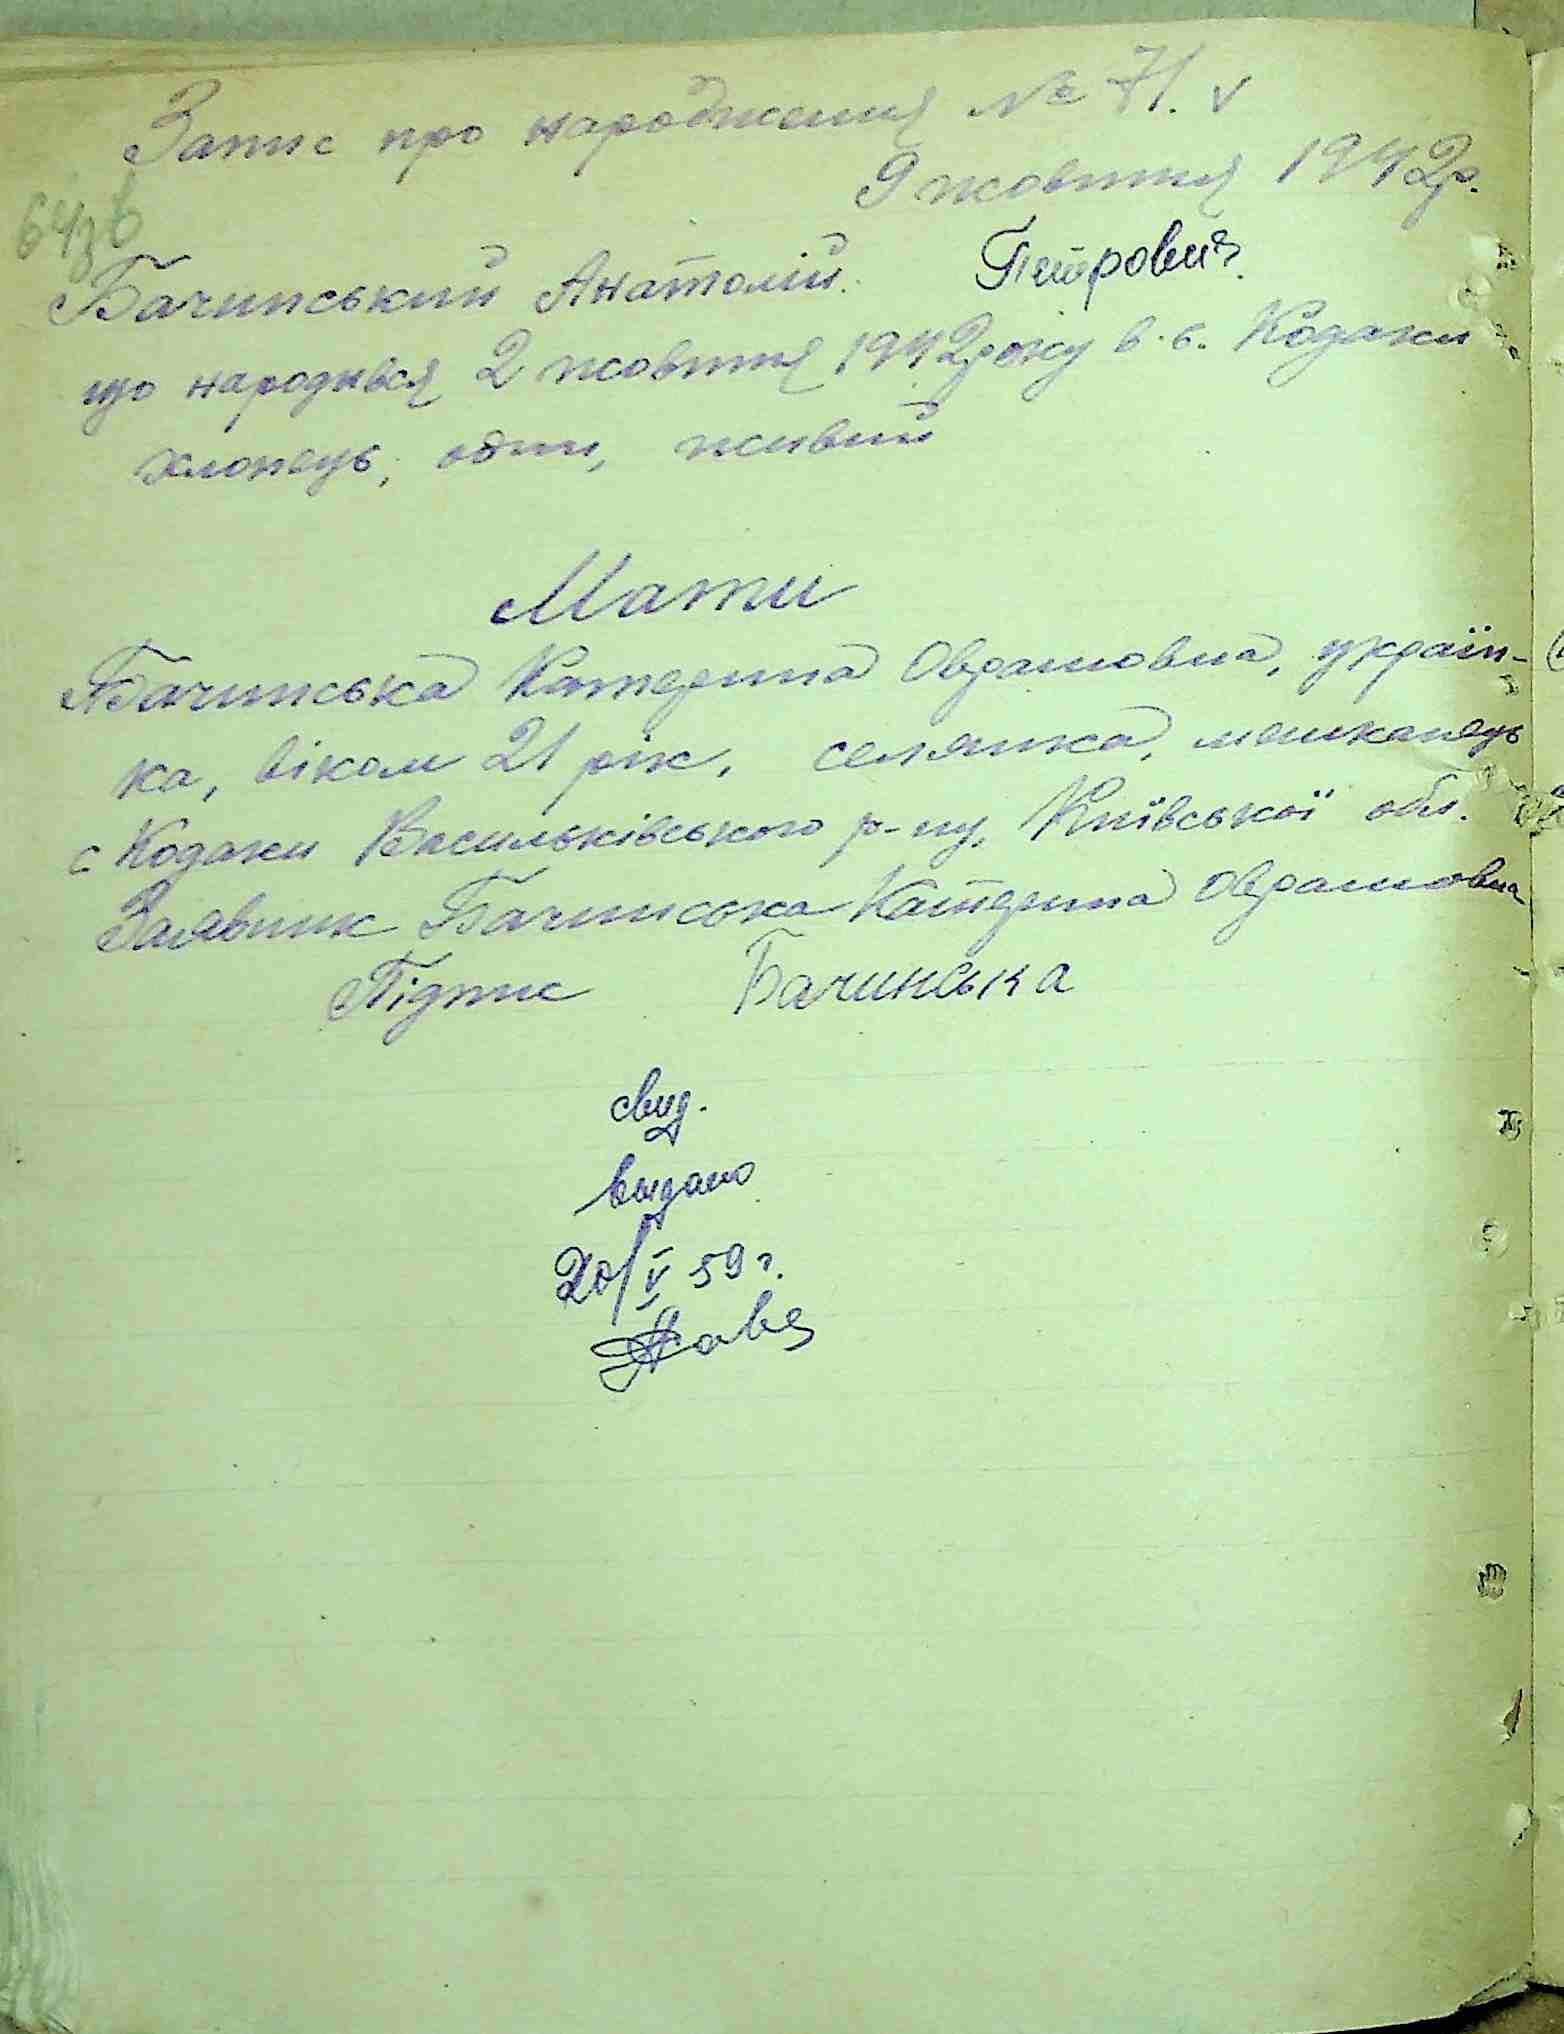 Запис про народження № 71. v
9 жовтня 1942р.
64зв
Бачинський Анатолій. Петрович.
що народився 2 жовтня 1942 року в с. Кодаки
хлопець, один, живий
Мати
Бачинська Катерина Оврамовна, україн-
ка, віком 21 рік, селянка, мешканець
с Кодаки Васильківського р-ну, Київської обл.
Заявник Бачинська Катерина Оврамовна
Підпис Бачинська
свид.
выдано
20/V 59 г.